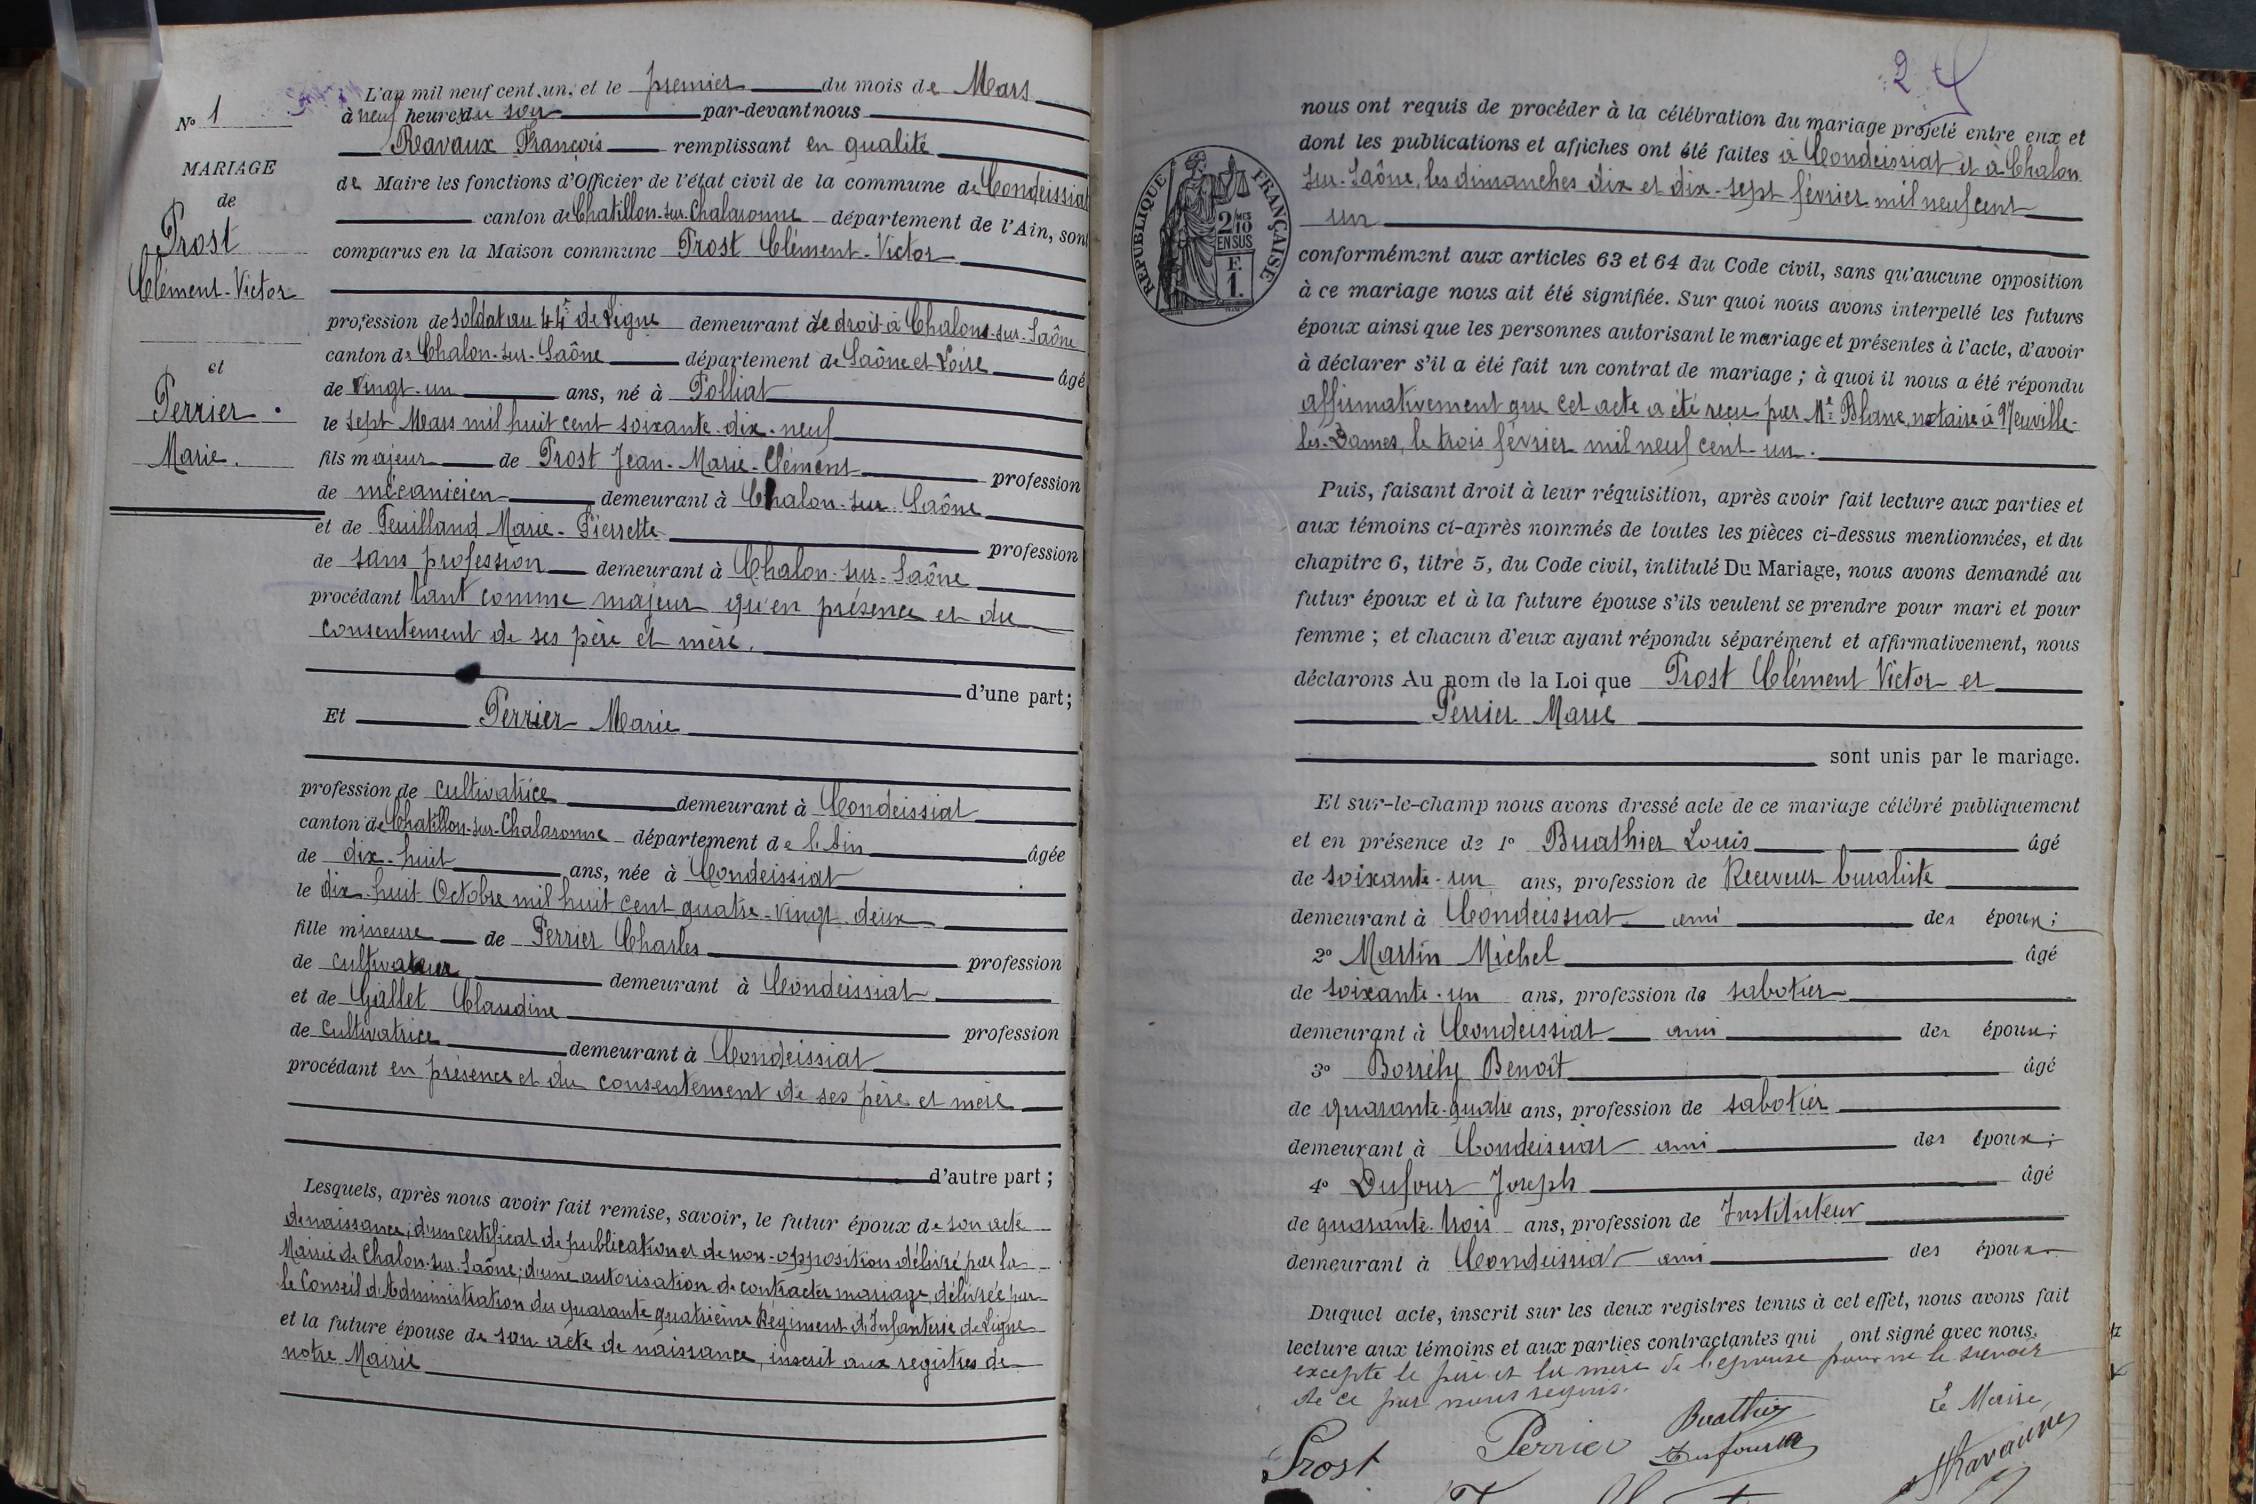 N° 1
MARIAGE
de
Prost
Clément-Victor
et
Perrier
Marie.
L'an mil neuf cent un, et le premier du mois de Mars
à neuf heures du soir par-devant nous
Ravaux François remplissant en qualité
de Maire les fonctions d'Officier de l'état civil de la commune de Condeissiat
canton de Chatillon-sur-Chalaronne département de l'Ain, sont
comparus en la Maison commune Prost Clément-Victor
profession de soldat au 44e de Ligne demeurant de droit à Chalons-sur-Saône
canton de Chalon-sur-Saône département de Saône et Loire âgé
de vingt-un ans, né à Polliat
le sept Mars mil huit cent soixante-dix-neuf
fils majeur de Prost Jean-Marie-Clément profession
de mécanicien demeurant à Chalon-sur-Saône
et de Feuilland Marie-Pierrette profession
de sans profession demeurant à Chalon-sur-Saône
procédant tant comme majeur qu'en présence et du
consentement de ses père et mère.
d'une part;
Et Perrier Marie
profession de cultivatrice demeurant à Condeissiat
canton de Chatillon-sur-Chalaronne département de l'Ain âgée
de dix-huit ans, née à Condeissiat
le dix-huit Octobre mil huit cent quatre-vingt-deux
fille mineure de Perrier Charles profession
de cultivateur demeurant à Condeissiat
et de Gallet Claudine profession
de cultivatrice demeurant à Condeissiat
procédant en présence et du consentement de ses père et mère
d'autre part;
Lesquels, après nous avoir fait remise, savoir, le futur époux de son acte
de naissance, d'un certificat de publication et de non-opposition délivré par la
Mairie de Chalon-sur-Saône; d'une autorisation de contracter mariage, délivrée par
le Conseil d'Administration du quarante quatrième Régiment d'Infanterie de Ligne
et la future épouse de son acte de naissance, inscrit aux registres de
notre Mairie
2
RÉPUBLIQUE FRANÇAISE
2/10
MES
EN SUS
F.
1.
nous ont requis de procéder à la célébration du mariage projeté entre eux et
dont les publications et affiches ont été faites à Condeissiat et à Chalon
sur-Saône, les dimanches dix et dix-sept février mil neuf cent
un
conformément aux articles 63 et 64 du Code civil, sans qu'aucune opposition
à ce mariage nous ait été signifiée. Sur quoi nous avons interpellé les futurs
époux ainsi que les personnes autorisant le mariage et présentes à l'acte, d'avoir
à déclarer s'il a été fait un contrat de mariage; à quoi il nous a été répondu
affirmativement que cet acte a été reçu par Me Blanc, notaire à Neuville-
les-Dames, le trois février mil neuf cent-un.
Puis, faisant droit à leur réquisition, après avoir fait lecture aux parties et
aux témoins ci-après nommés de toutes les pièces ci-dessus mentionnées, et du
chapitre 6, titre 5, du Code civil, intitulé Du Mariage, nous avons demandé au
futur époux et à la future épouse s'ils veulent se prendre pour mari et pour
femme; et chacun d'eux ayant répondu séparément et affirmativement, nous
déclarons Au nom de la Loi que Prost Clément Victor et
Perrier Marie
sont unis par le mariage.
Et sur-le-champ nous avons dressé acte de ce mariage célébré publiquement
et en présence de 1° Buathier Louis âgé
de soixante-un ans, profession de Receveur buraliste
demeurant à Condeissiat ami des époux;
2° Martin Michel âgé
de soixante-un ans, profession de sabotier
demeurant à Condeissiat ami des époux;
3° Borrély Benoît âgé
de quarante-quatre ans, profession de sabotier
demeurant à Condeissiat ami des époux;
4° Dufour Joseph âgé
de quarante-trois ans, profession de Instituteur
demeurant à Condeissiat ami des époux.
Duquel acte, inscrit sur les deux registres tenus à cet effet, nous avons fait
lecture aux témoins et aux parties contractantes qui ont signé avec nous.
excepté le père et la mère de l'épouse pour ne le savoir
de ce par nous requis.
Le Maire,
Prost Perrier Buathier
Dufour Ravaux